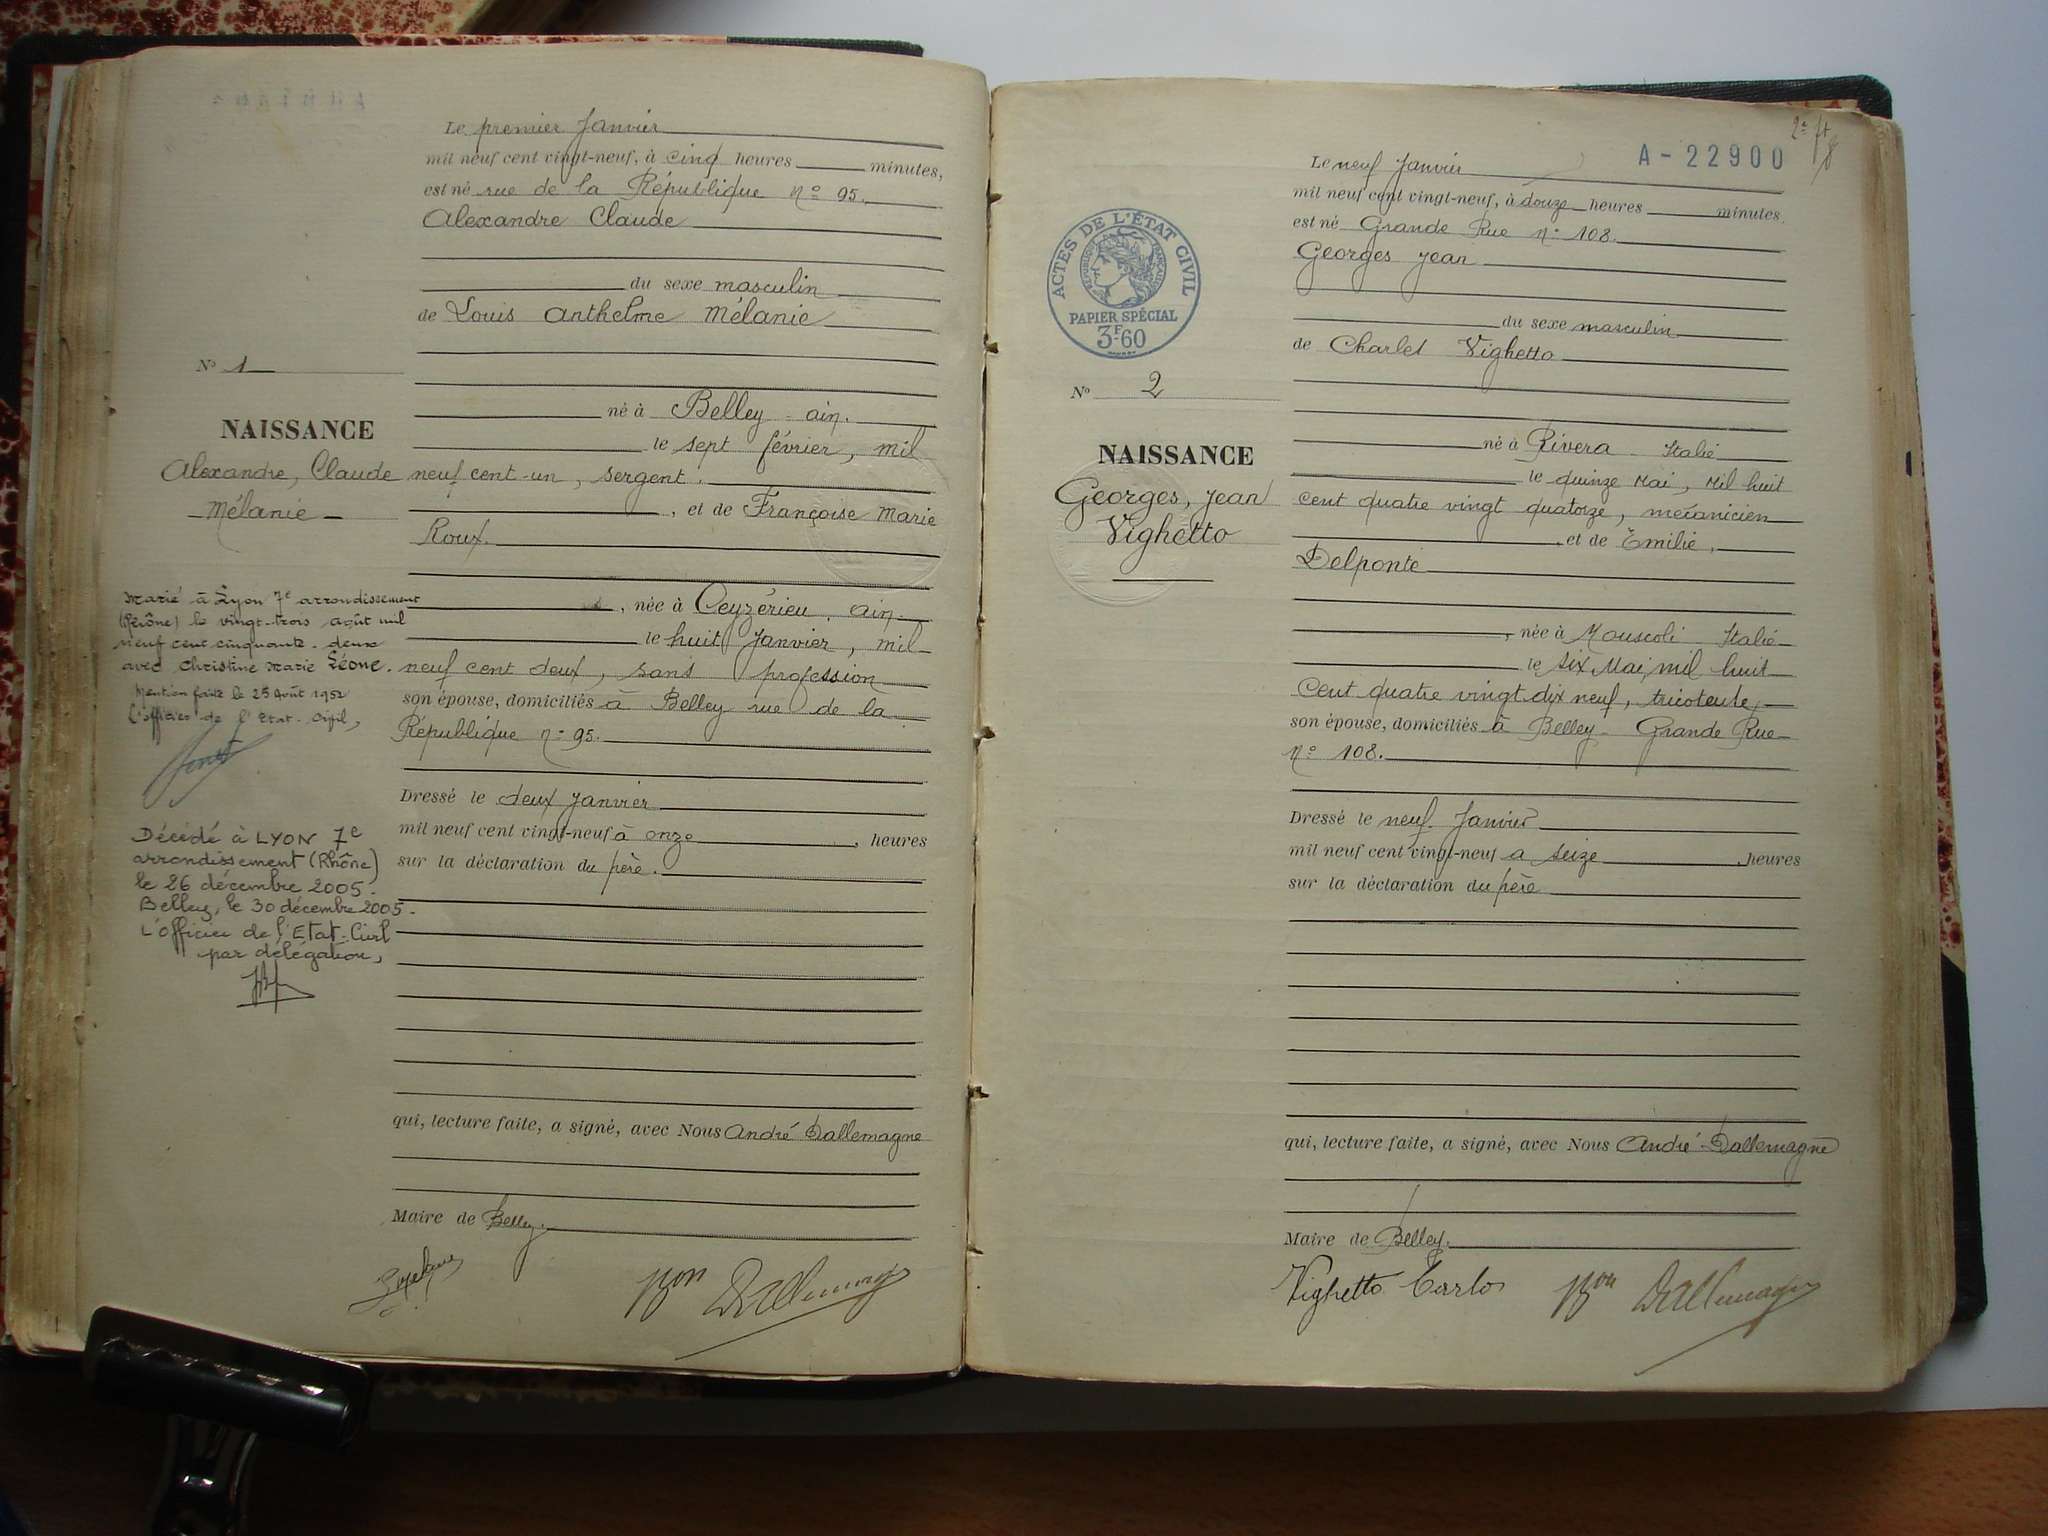 Le premier Janvier
mil neuf cent vingt-neuf, à cinq heures minutes,
est né rue de la République n° 95.
Alexandre Claude
du sexe masculin
de Louis Anthelme Mélanie
né à Belley - ain.
le sept février, mil
neuf cent-un, sergent.
, et de Françoise Marie
Roux.
, née à Ceyzérieu, ain
le huit Janvier, mil
neuf cent deux, sans profession
son épouse, domiciliés à Belley rue de la
République n° 95.
Dressé le deux Janvier
mil neuf cent vingt-neuf à onze, heures
sur la déclaration du père.
qui, lecture faite, a signé, avec Nous André Dallemagne
Maire de Belley.
Bon Dallemagne
N° 1
NAISSANCE
Alexandre, Claude
Mélanie
Marié à Lyon 7e arrondissement
(Rhône) le vingt-trois août mil
neuf cent cinquante-deux
avec Christine Marie Léone.
Mention faite le 25 Août 1952
L'officier de l'Etat-Civil,
Décédé à LYON 7e
arrondissement (Rhône)
le 26 décembre 2005.
Belley, le 30 décembre 2005.
L'Officier de l'Etat-Civil
par délégation,
2e ft
A-22900
Le neuf Janvier
mil neuf cent vingt-neuf, à douze heures minutes
est né Grande Rue n° 108.
Georges Jean
du sexe masculin
de Charles Vighetto
né à Rivera - Italie
le quinze Mai, Mil huit
cent quatre vingt quatorze, mécanicien
, et de Émilie,
Delponte
, née à Mouscoli Italie
le six Mai, mil huit
Cent quatre vingt dix neuf, tricoteuse,
son épouse, domiciliés à Belley - Grande Rue
N° 108.
Dressé le neuf Janvier
mil neuf cent vingt-neuf a seize, heures
sur la déclaration du père
qui, lecture faite, a signé, avec Nous André Dallemagne
Maire de Belley.
Vighetto Carlo Bon Dallemagne
ACTES DE L'ÉTAT CIVIL
RÉPUBLIQUE FRANÇAISE
PAPIER SPÉCIAL
3F60
N° 2
NAISSANCE
Georges, Jean
Vighetto